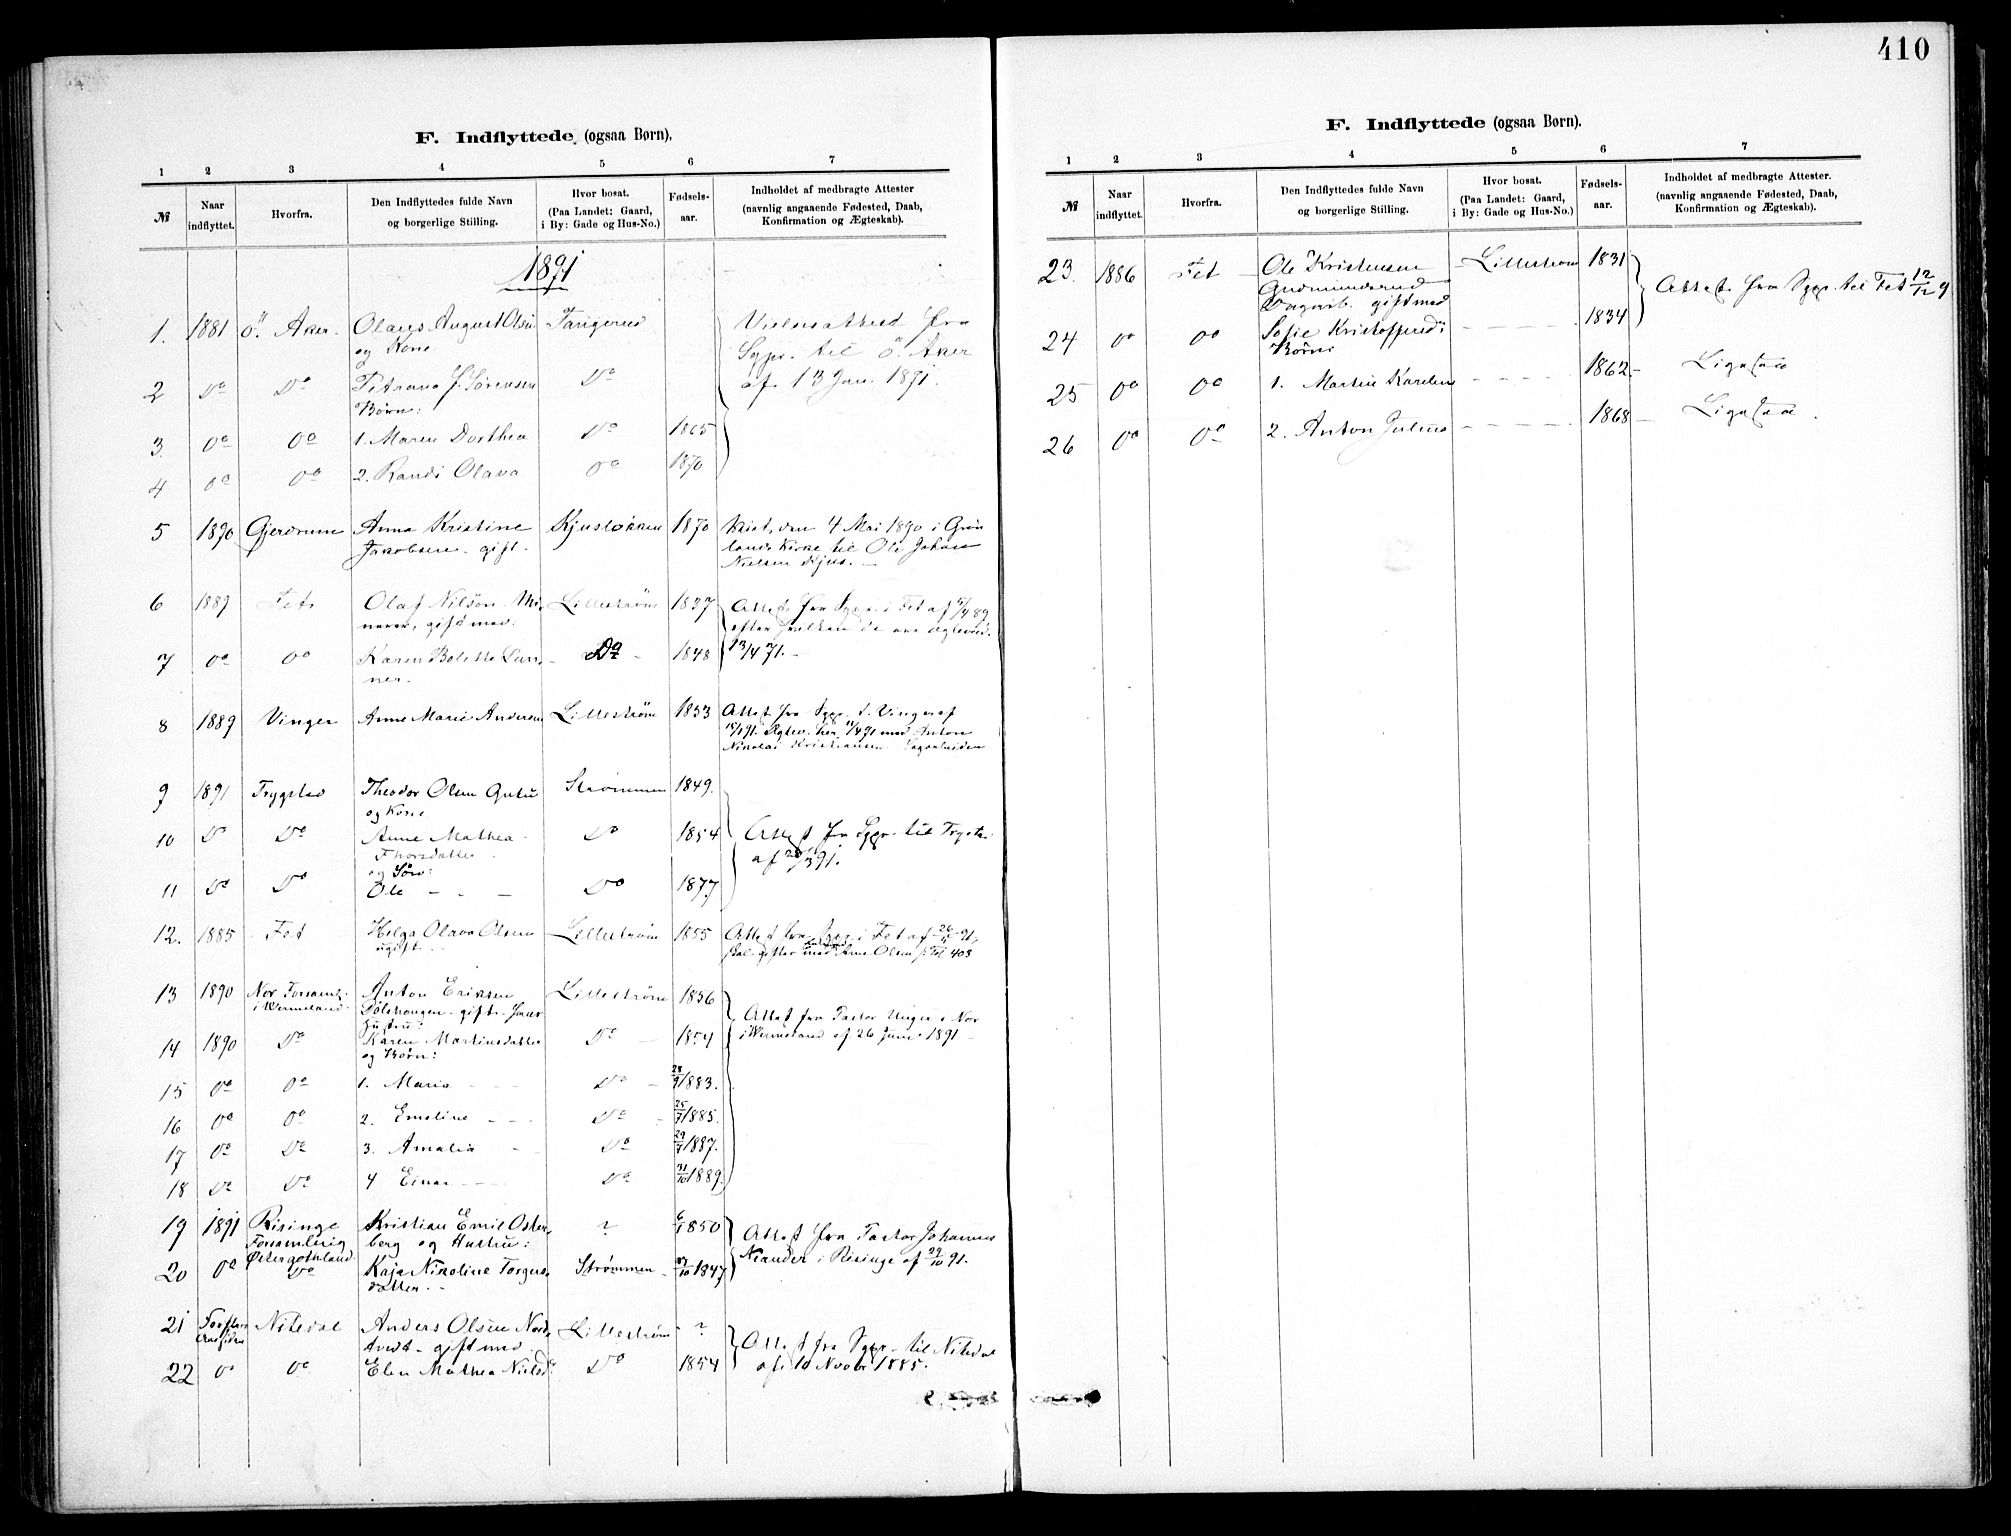 410
F. Indflyttede (ogsaa Børn).
1 2 3 4 5 6 7
№ Naar indflyttet. Hvorfra. Den Indflyttedes fulde Navn og borgerlige Stilling. Hvor bosat. (Paa Landet: Gaard, i By: Gade og Hus-No.) Fødsels-aar. Indholdet af medbragte Attester (navnlig angaaende Fødested, Daab, Konfirmation og Ægteskab).
1891
1. 1881 Ö. Aker. Olaus August Olsen Tangerud
og Kone
Sgpr. til Ö. Aker
2 Do Do Petrana J. Sørensen Do af 13 Jan. 1891.
Børn:
3. Do Do 1. Maren Dorthea Do 1865
4 Do Do 2. Randi Olava Do 1870
5 1890 Gjerdrum Anna Kristine Kjusløkken 1870 Viet den 4 Mai 1890 i Grøn
Jakobsen gift. lands Kirke til Ole Johan
Nielsen Kjus.
6 1889 Fet Olaf Nilson Mi- Lillestrøm 1837 Attest fra Sgpr. i Fet af 5/4 89
nerer, gift med. efter hvilken de ere ægteviet
7 Do Do Karen Bolette Lun- Do 1848 13/4 71.
ner.
8 1889 Vinger Anne Marie Andersen Lillestrøm 1853 Attest fra Sgpr. t. Vinger af
med Anton
Nikolai Kristiansen Sagarbeider
9 1891 Trygstad Theodor Olsen Strømmen 1849.
og Kone
10 Do Do Anne Mathea Do 1854 Attest fra Sgpr. til Trygsta
Thorsdatter af 28/3 91.
og Søn:
11 Do Do Ole Do 1877
12. 1885 Fet Helga Olava Olsen Lillestrøm 1855 Attest fra Sgpr i Fet af 26/5 91,
ugift skal giftes med Arne Olsen Fol 403
13 1890 Nor Forsaml. Anton Eriksen Lillestrøm 1856
i Wermeland. gift Attest fra Pastor Unger i Nor
Hustru:
14 1890 Do Karen Martinsdatter Do 1854 i Wermeland af 26 Juni 1891
og Børn:
15 Do Do 1. Maria Do 28/9 1883.
16 Do Do 2. Emeline Do 25/7 1885.
17 Do Do 3. Amalia Do 29/9 1887.
18 Do Do 4 Einar Do 31/10 1889.
19 1891 Risinge Kristian Emil Oster- ? 6/1 1850 Attest fra Pastor Johannes
Forsamling berg og Hustru: Neander i Risinge af 29/10 91.
Østergothland
20 Do Do Kaja Nikoline Torgers- Strømmen 1847
datter.
21 Nitedal Anders Olsen Nord- Lillestrøm ?
tvedt gift med Attest fra Sgpr til Nitedal
22 Do Do Elen Mathea Nielsd: Do 1854 af 10 Novbr 1885.
F. Indflyttede (ogsaa Børn).
1 2 3 4 5 6 7
№ Naar indflyttet. Hvorfra. Den Indflyttedes fulde Navn og borgerlige Stilling. Hvor bosat. (Paa Landet: Gaard, i By: Gade og Hus-No.) Fødsels-aar. Indholdet af medbragte Attester. (navnlig angaaende Fødested, Daab, Konfirmation og Ægteskab).
23. 1886 Fet Ole Kristensen Lillestrøm 1831
Gudmundsrud Attest fra Sgpr. til Fet 12/12 9
Dagarb. gift med
24 Do Do Sofie Kristoffersd: 1834
Børn:
25 Do Do 1. Martin Karelius 1862 Ligesaa
26 Do Do 2. Anton Julius 1868 Ligesaa.